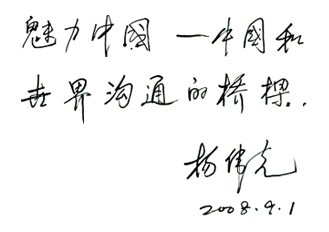 魅力中國 一中國和
世界沟通的桥樑.
杨伟光
2008.9.1